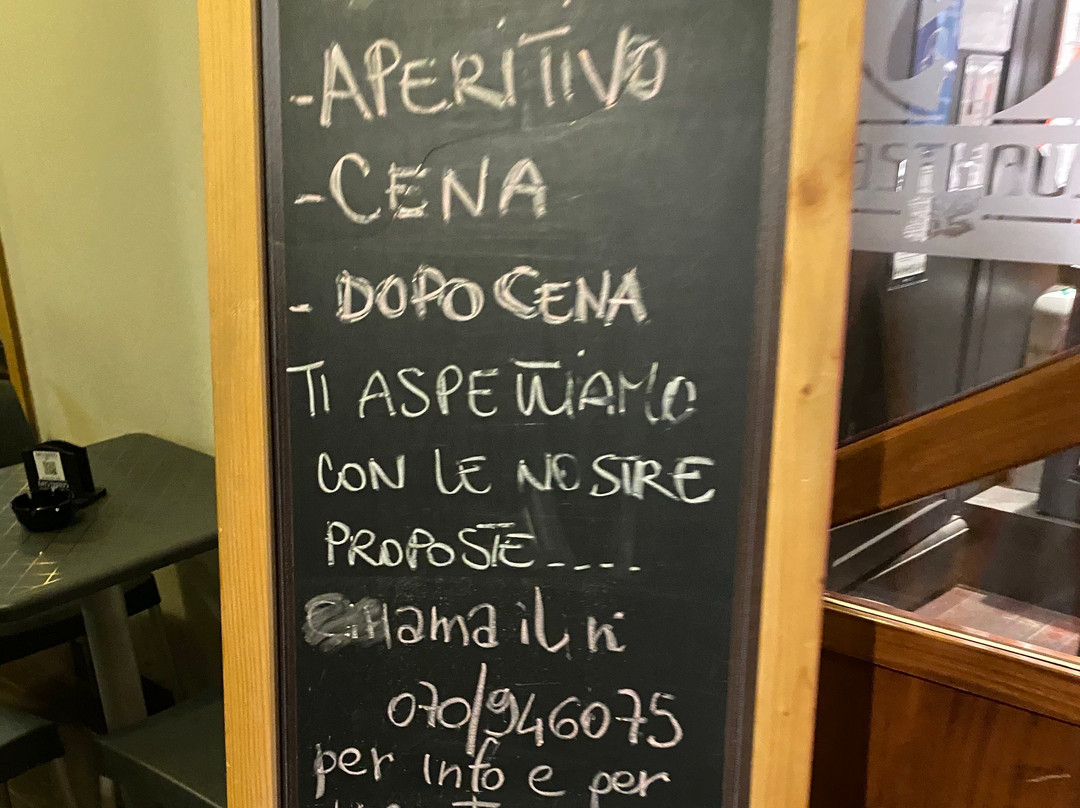 -APERITIVO
-CENA
- DOPOCENA
TI ASPETTIAMO
CON LE NOSTRE
PROPOSTE....
CHiama il n°
070/946075
per info e per